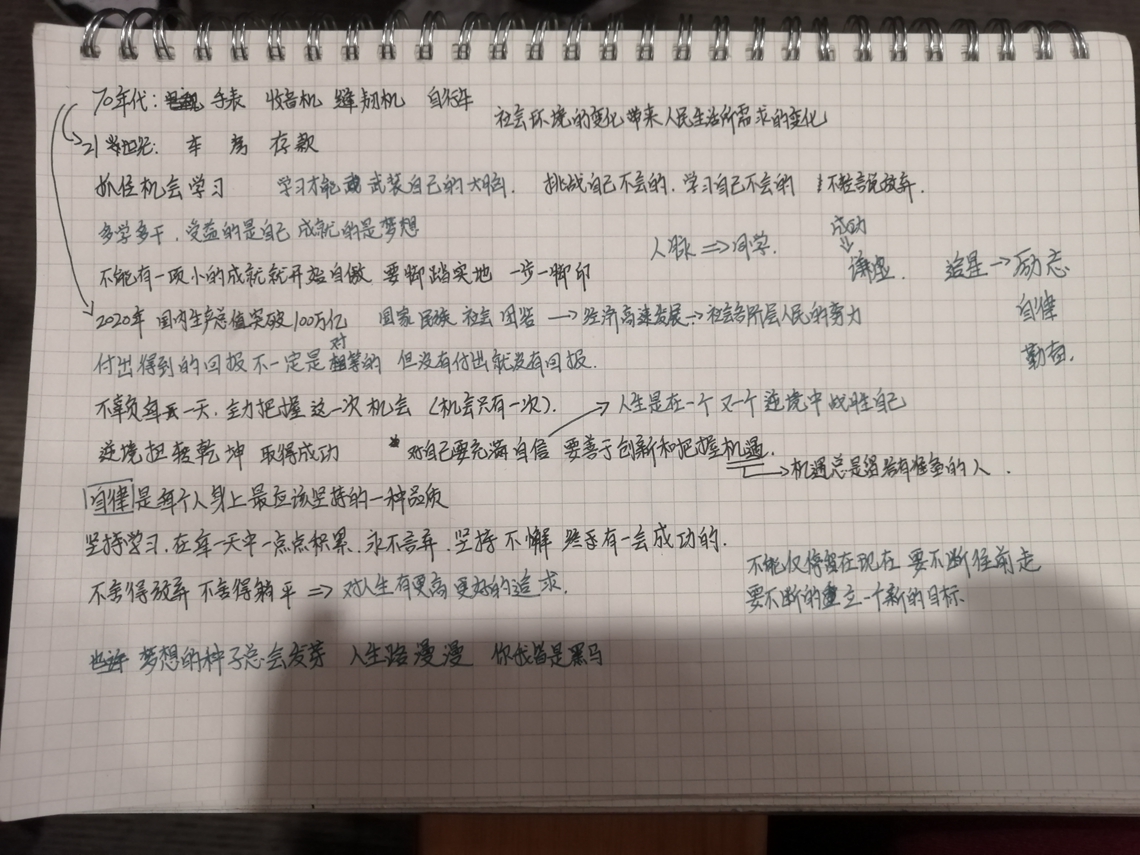 70年代：手表 收音机 缝纫机 自行车
社会环境的变化带来人民生活所需求的变化
21世纪：车 房 存款
抓住机会学习 学习才能武装自己的大脑. 挑战自己不会的，学习自己不会的 不轻言放弃.
多学多干，受益的是自己 成就的是梦想
人脉 ⇒ 同学.
成功
⇓
谦虚. 追星 → 励志
自律
勤奋.
不能有一项小的成就就开始自傲 要脚踏实地 一步一脚印
2020年 国内生产总值突破100万亿 国家 民族 社会 团结 → 经济高速发展 → 社会各阶层人民的努力
付出得到的回报不一定是对等的 但没有付出就没有回报.
不辜负每一天，全力把握这一次机会（机会只有一次）.
→ 人生是在一个又一个逆境中战胜自己
逆境扭转乾坤 取得成功 * 对自己要充满自信 要善于创新和把握机遇.
→ 机遇总是留给有准备的人.
自律是每个人身上最应该坚持的一种品质
坚持学习，在每一天中一点点积累，永不言弃，坚持不懈 终有一会成功的.
不舍得放弃 不舍得躺平 ⇒ 对人生有更高更好的追求.
不能仅停留在现在 要不断往前走
要不断的建立一个新的目标.
也许 梦想的种子总会发芽 人生路漫漫 你我皆是黑马